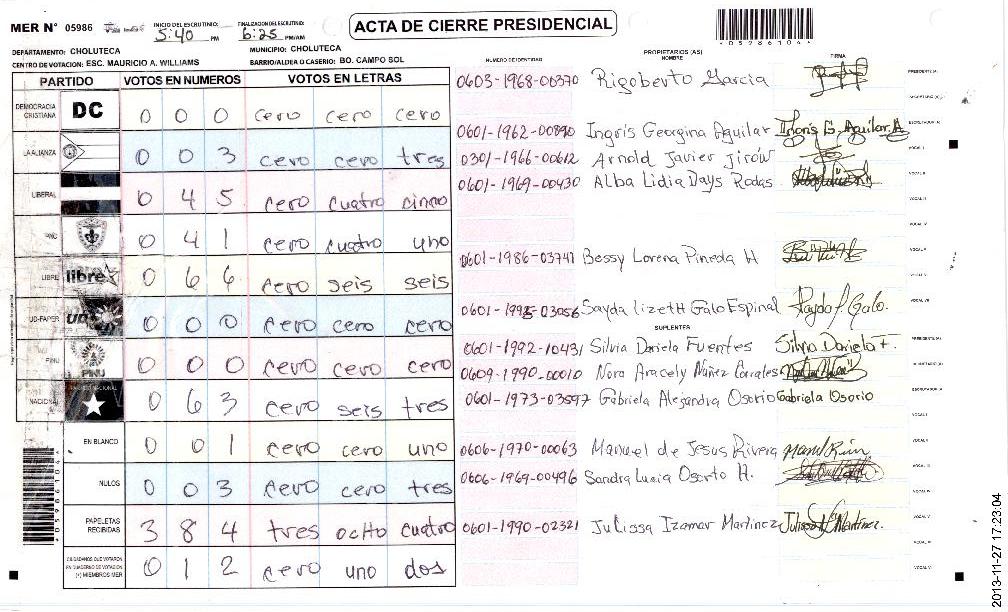 MER N° 05986 INICIO DEL ESCRUTINIO: 5:40 PM FINALIZACION DEL ESCRUTINIO: 6:25 PM/AM ACTA DE CIERRE PRESIDENCIAL *05986104*
DEPARTAMENTO: CHOLUTECA MUNICIPIO: CHOLUTECA
CENTRO DE VOTACION: ESC. MAURICIO A. WILLIAMS BARRIO/ALDEA O CASERIO: BO. CAMPO SOL
NUMERO DE IDENTIDAD PROPIETARIOS (AS) NOMBRE FIRMA
PARTIDO VOTOS EN NUMEROS VOTOS EN LETRAS
DEMOCRACIA CRISTIANA DC 0 0 0 cero cero cero
LA ALIANZA 0 0 3 cero cero tres
LIBERAL 0 4 5 cero cuatro cinco
0 4 1 cero cuatro uno
LIBRE libre 0 6 6 cero seis seis
UD-FAPER UD 0 0 0 cero cero cero
PINU PINU 0 0 0 cero cero cero
NACIONAL 0 6 3 cero seis tres
EN BLANCO 0 0 1 cero cero uno
NULOS 0 0 3 cero cero tres
PAPELETAS RECIBIDAS 3 8 4 tres ocho cuatro
CIUDADANOS QUE VOTARON EN CUADERNO DE VOTACION (+) MIEMBROS MER 0 1 2 cero uno dos
0603-1968-00370 Rigoberto Garcia PRESIDENTE (A)
SECRETARIO (A)
0601-1962-00890 Ingris Georgina Aguilar Ingris G. Aguilar A ESCRUTADOR (A)
0301-1966-00612 Arnold Javier Jirón VOCAL I
0601-1969-00430 Alba Lidia Days Rodas VOCAL II
VOCAL III
VOCAL IV
0601-1986-03741 Bessy Lorena Pineda H VOCAL V
VOCAL VI
03056 Sayda Lizeth Galo Espinal Sayda L. Galo. VOCAL VII
SUPLENTES
0601-1992-10431 Silvia Daniela Fuentes Silvia Daniela F. PRESIDENTE (A)
0609-1990-00010 Nora Aracely Núñez Corrales
0601-1973-03597 Gabriela Alejandra Osorio Gabriela Osorio ESCRUTADOR (A)
VOCAL I
0606-1970-00063 Manuel de Jesus Rivera VOCAL II
0606-1969-00496 Sandra Lucia Osorto H. VOCAL III
VOCAL IV
0601-1990-02321 Julissa Izamar Martinez Julissa Martinez. VOCAL V
VOCAL VI
*05986104*
2013-11-27 17:23:04